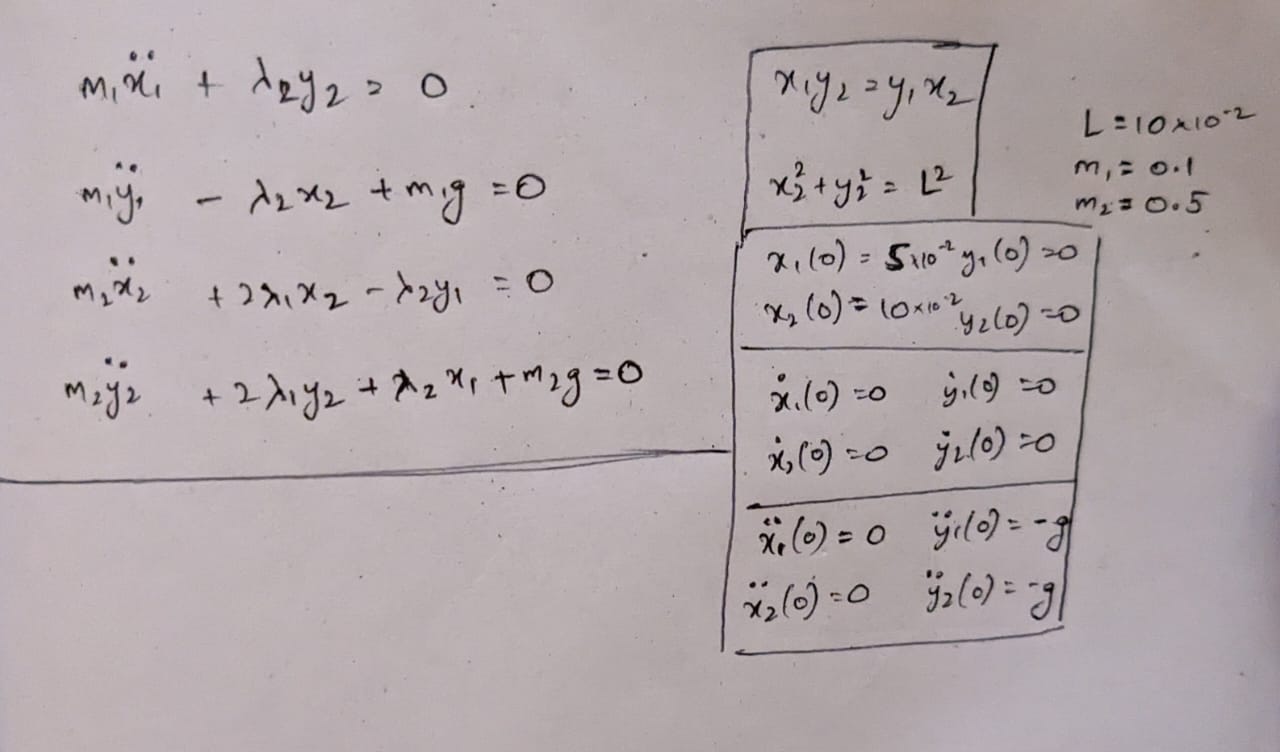 m₁ẍ₁ + λ₂y₂ = 0
m₁ÿ₁ - λ₂x₂ + m₁g = 0
m₂ẍ₂ + 2λ₁x₂ - λ₂y₁ = 0
m₂ÿ₂ + 2λ₁y₂ + λ₂x₁ + m₂g = 0
x₁y₂ = y₁x₂
x₂² + y₂² = L²
L = 10×10⁻²
m₁ = 0.1
m₂ = 0.5
x₁(0) = 5×10⁻² y₁(0) = 0
x₂(0) = 10×10⁻² y₂(0) = 0
ẋ₁(0) = 0 ẏ₁(0) = 0
ẋ₂(0) = 0 ẏ₂(0) = 0
ẍ₁(0) = 0 ÿ₁(0) = -g
ẍ₂(0) = 0 ÿ₂(0) = -g